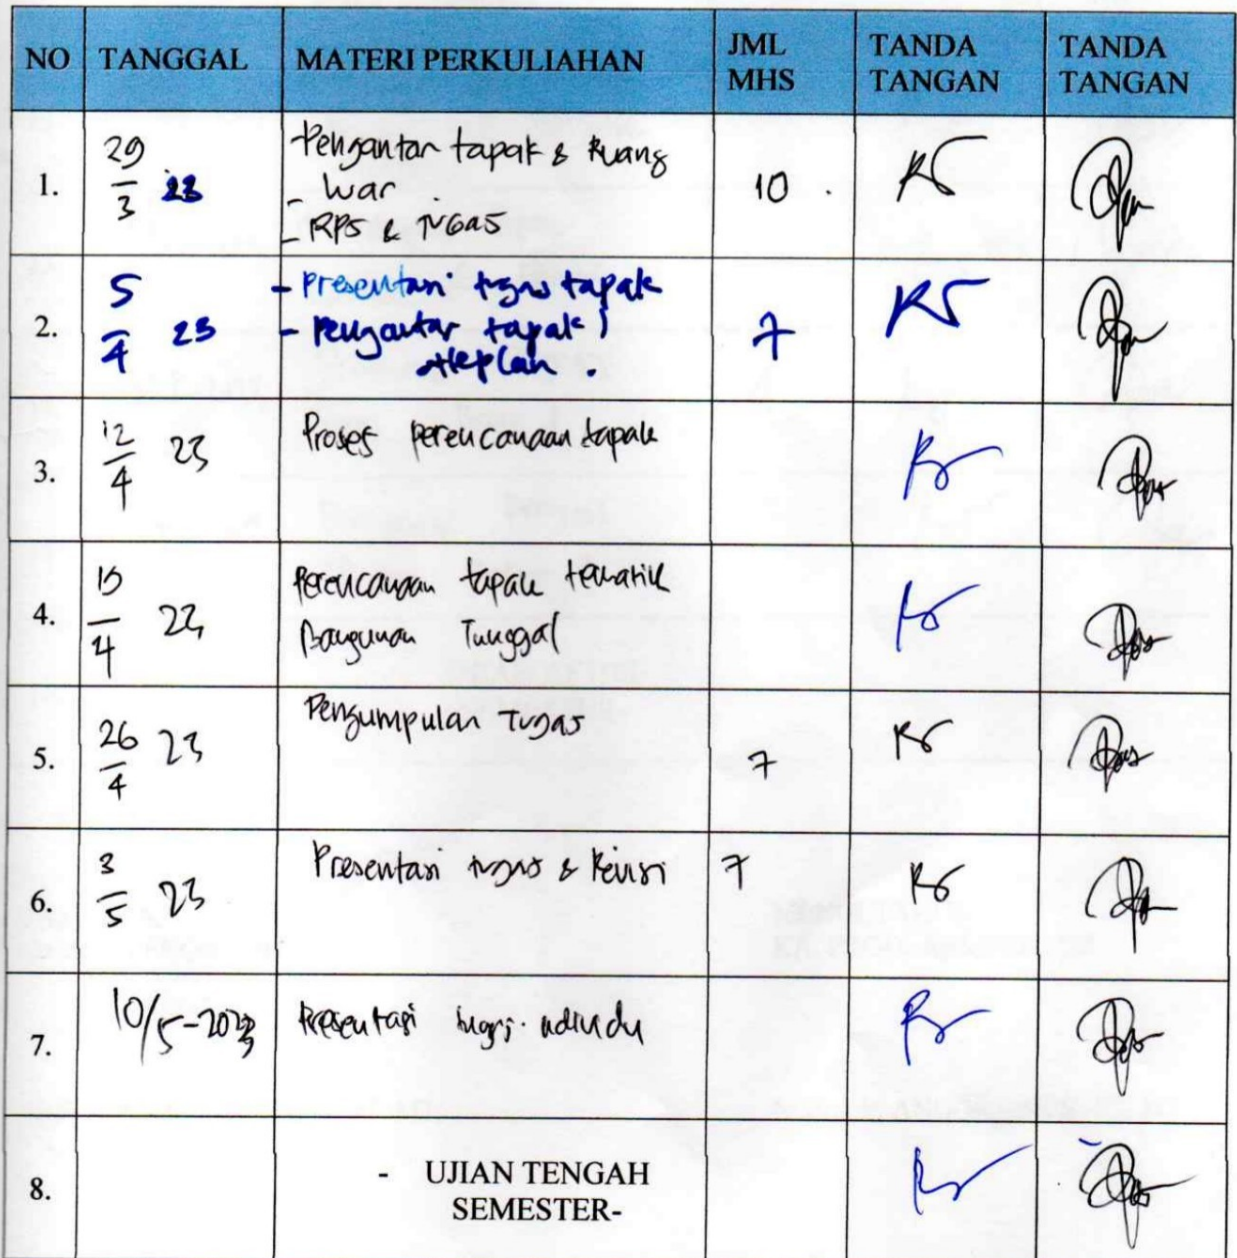 NO TANGGAL MATERI PERKULIAHAN JML MHS TANDA TANGAN TANDA TANGAN
1. 29/3 23 Pengantar tapak & Ruang 10
- War
- RPS & TUGAS
2. 5/4 23 - Presentasi tugas tapak 7
- Pengantar tapak /
siteplan .
3. 12/4 23 Proses perencanaan tapak
4. /4 23 Perencanaan tapak tematik
Bangunan Tunggal
5. 26/4 23 Pengumpulan Tugas 7
6. 3/5 23 Presentasi tugas & Revisi 7
7. 10/5-2023 Presentasi tugas
8. - UJIAN TENGAH
SEMESTER-